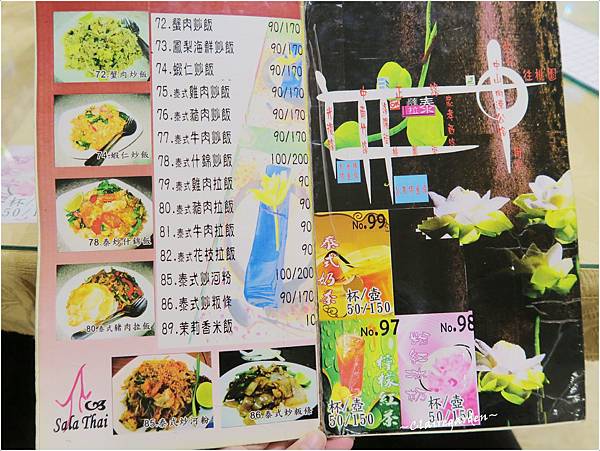 72.蟹肉炒飯 90/170
73.鳳梨海鮮炒飯 90/170
74.蝦仁炒飯 90/170
75.泰式雞肉炒飯 90/170
76.泰式豬肉炒飯 90/170
77.泰式牛肉炒飯 90/170
78.泰式什錦炒飯 100/200
79.泰式雞肉拉飯 90
80.泰式豬肉拉飯 90
81.泰式牛肉拉飯 90
82.泰式花枝拉飯 90
85.泰式炒河粉 100/200
86.泰式炒粄條 90/170
89.茉莉香米飯 10
72.蟹肉炒飯
74.蝦仁炒飯
78.泰炒什錦飯
80.泰式豬肉拉飯
85.泰式炒河粉
86.泰式炒粄條
Sala Thai
往桃園
泰
No.99
泰式奶茶
杯/壺
50/150
No.97
檸檬紅茶
杯/壺
50/150
No.98
粉紅冰奶
杯/壺
50/150
杯/
50/15